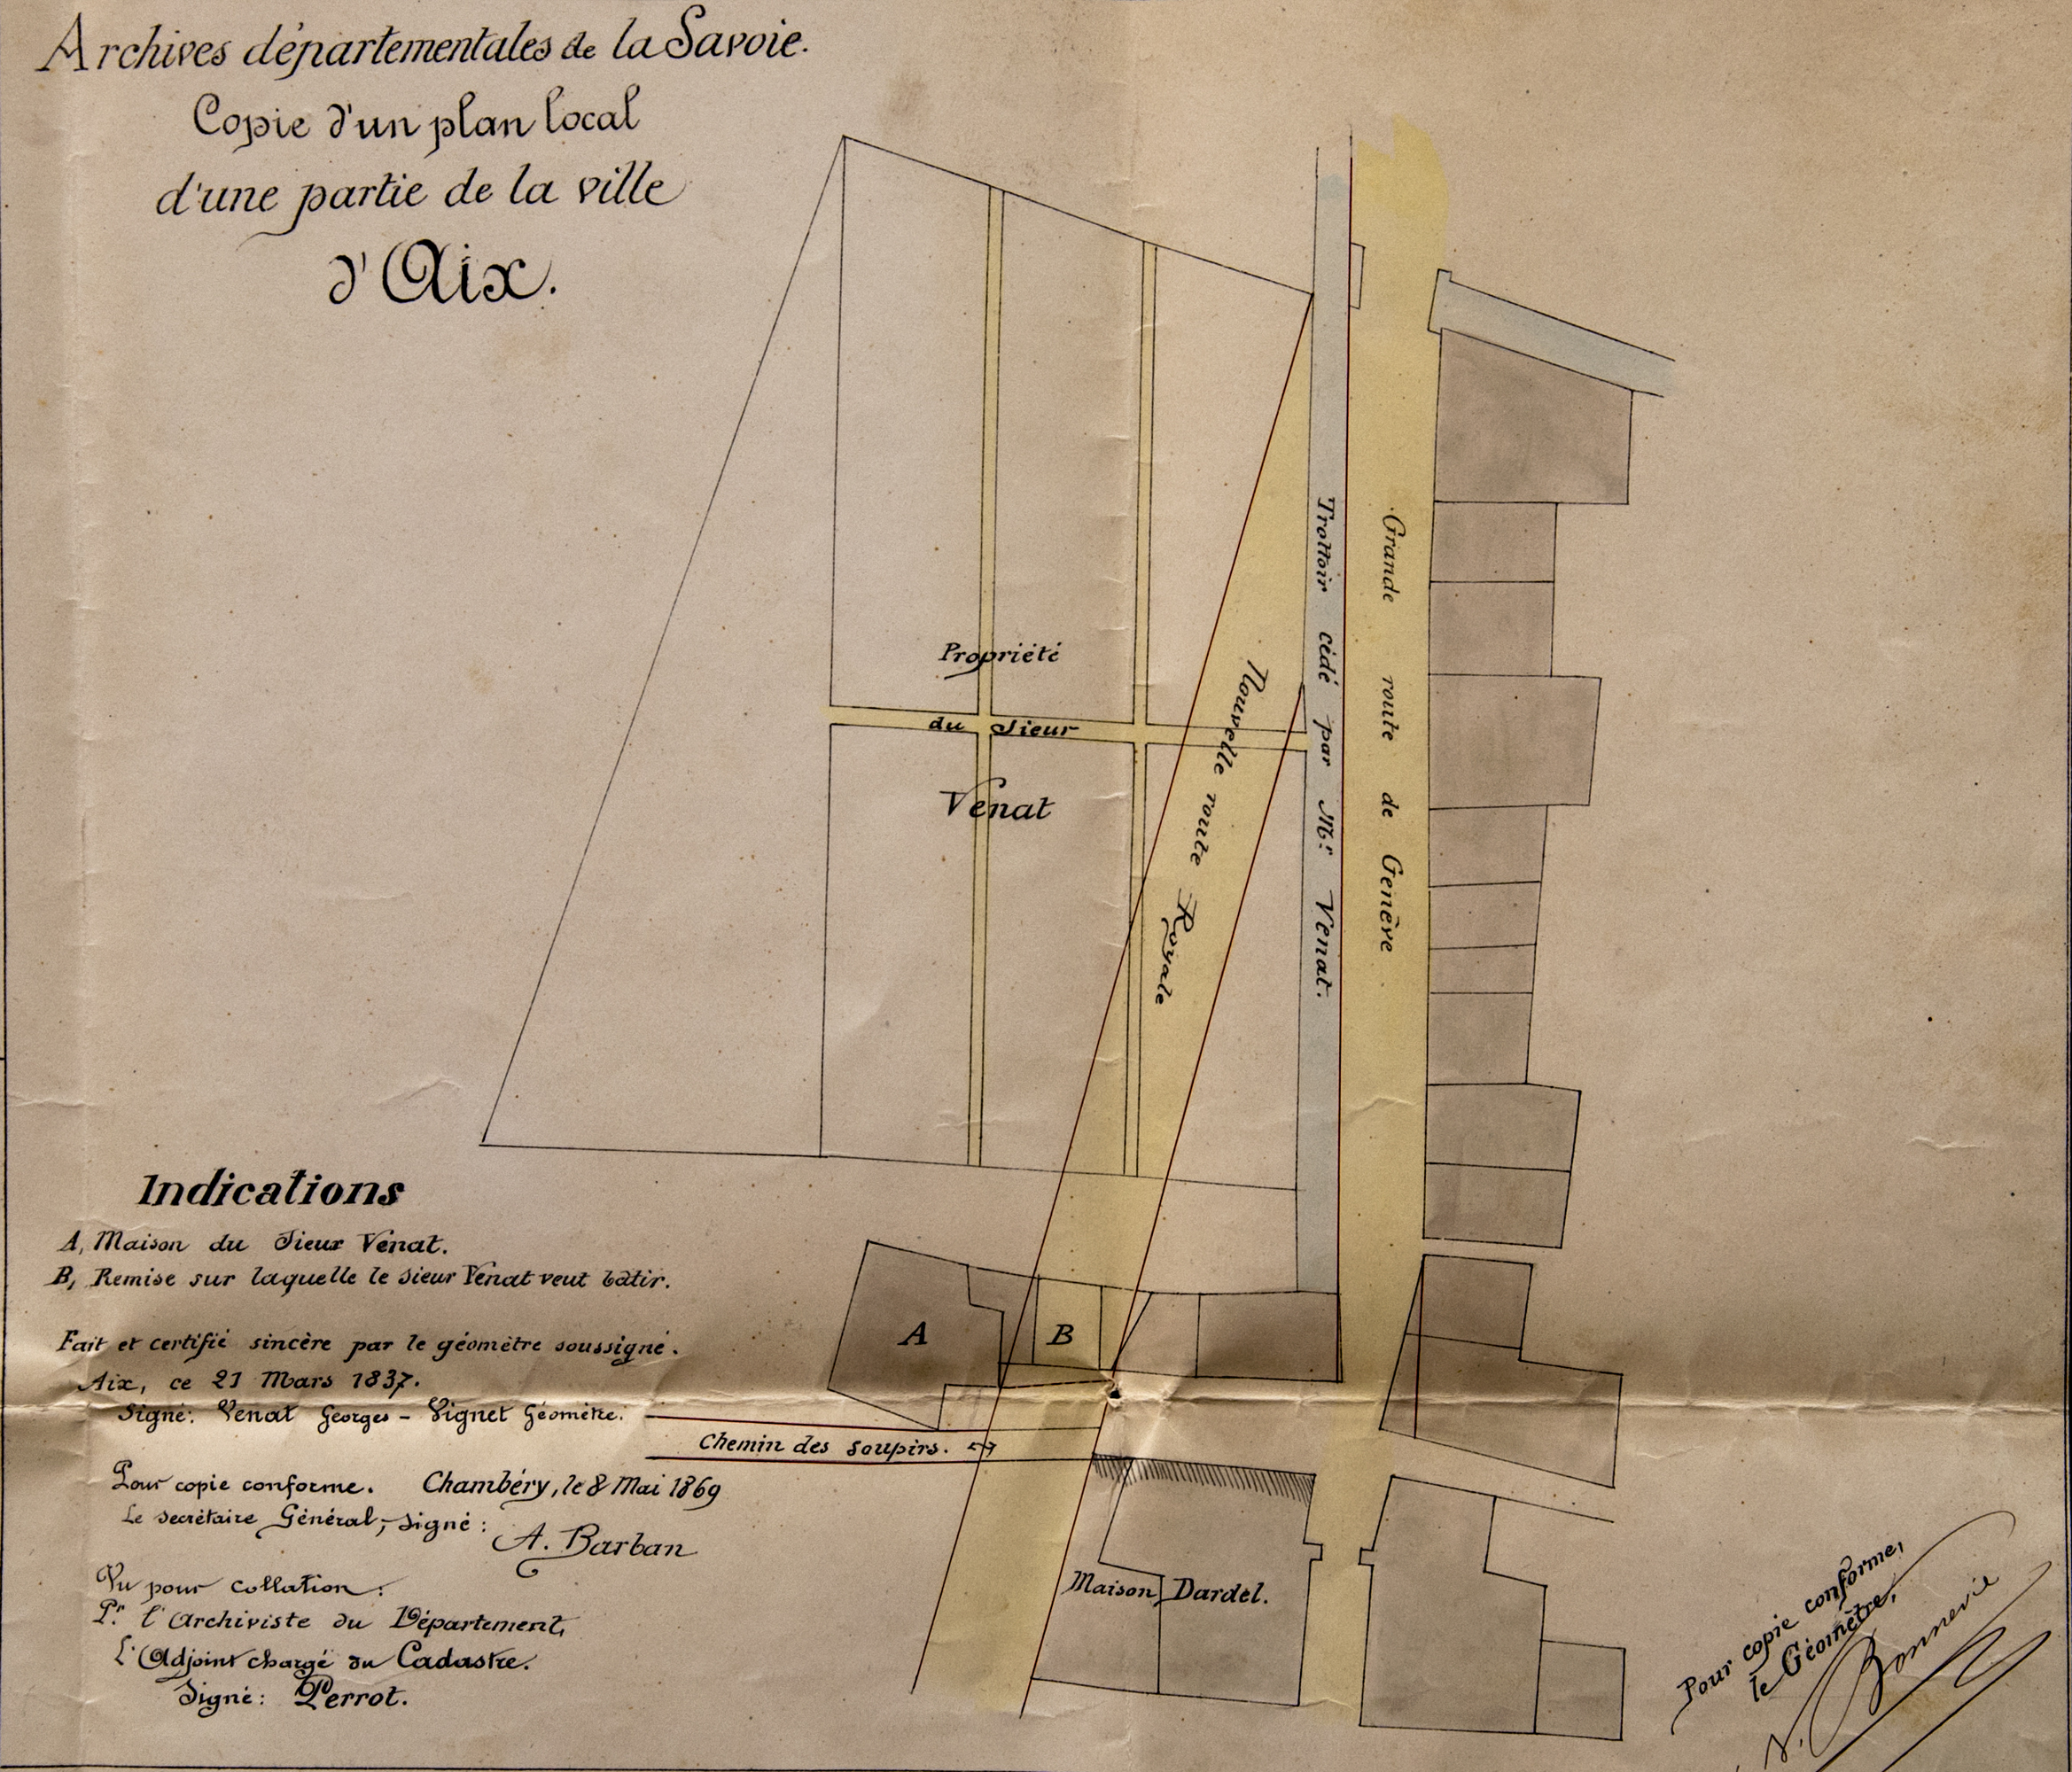 Archives départementales de la Savoie.
Copie d'un plan local
d'une partie de la ville
d'Aix.
Propriété
du Sieur
Venat
Nouvelle route Royale
Trottoir cédé par Mr. Venat.
Grande route de Genève
Indications
A, Maison du Sieur Venat.
B, Remise sur laquelle le Sieur Venat veut bâtir.
Fait et certifié sincère par le géomètre soussigné.
Aix, ce 21 Mars 1837.
Signé: Venat Georges - Vignet Géomètre.
A
B
Chemin des soupirs.
Pour copie conforme. Chambéry, le 8 Mai 1869
Le secrétaire Général, signé:
A. Barban
Vu pour collation:
Pr. l'Archiviste du Département,
L'Adjoint chargé du Cadastre.
Signé: Perrot.
Maison Dardel.
Pour copie conforme,
le Géomètre,
Bonnevie